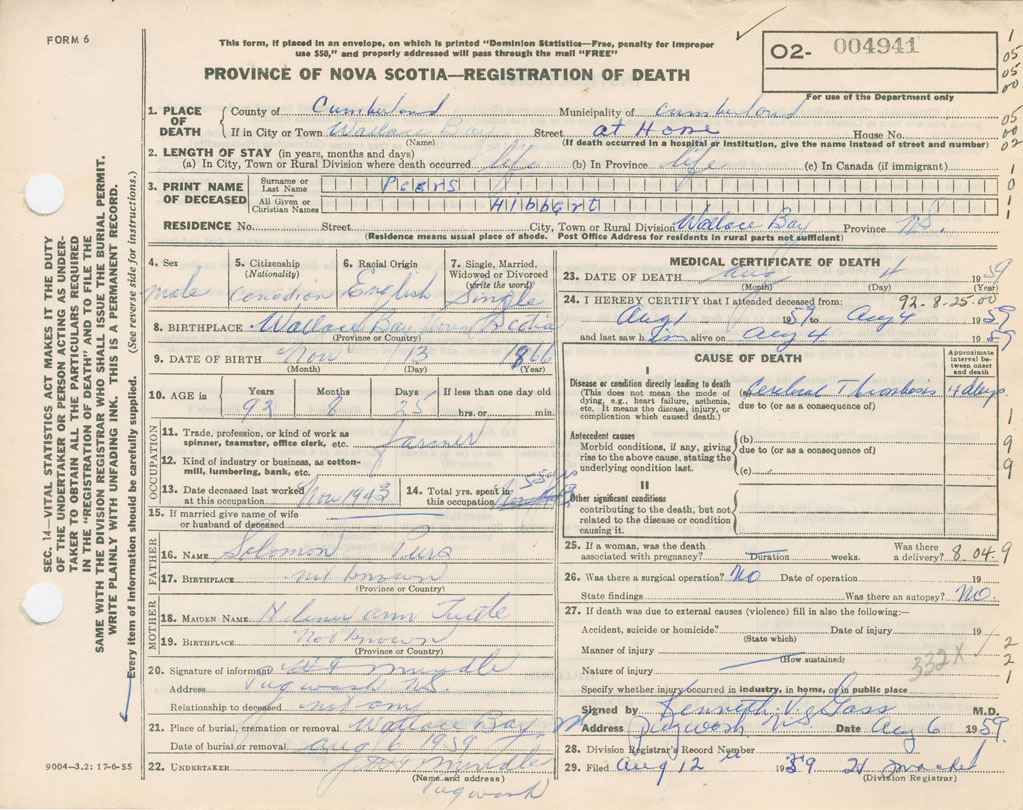 FORM 6
This form, if placed in an envelope, on which is printed "Dominion Statistics—Free, penalty for improper
use $50," and properly addressed will pass through the mail "FREE"
PROVINCE OF NOVA SCOTIA—REGISTRATION OF DEATH
02- 004941
For use of the Department only
1. PLACE OF DEATH
County of Cumberland Municipality of Cumberland
If in City or Town Wallace Bay Street at Home House No.
(Name) (If death occurred in a hospital or institution, give the name instead of street and number)
2. LENGTH OF STAY (in years, months and days)
(a) In City, Town or Rural Division where death occurred life (b) In Province life (c) In Canada (if immigrant)
3. PRINT NAME OF DECEASED
Surname or Last Name Peers
All Given or Christian Names Hibbert
RESIDENCE No. Street City, Town or Rural Division Wallace Bay Province N.S.
(Residence means usual place of abode. Post Office Address for residents in rural parts not sufficient)
4. Sex
male
5. Citizenship
(Nationality)
Canadian
6. Racial Origin
English
7. Single, Married,
Widowed or Divorced
(write the word)
Single
8. BIRTHPLACE Wallace Bay Nova Scotia
(Province or Country)
9. DATE OF BIRTH Nov 13 1866
(Month) (Day) (Year)
10. AGE in Years Months Days If less than one day old
92 8 25 hrs. or min.
OCCUPATION
11. Trade, profession, or kind of work as
spinner, teamster, office clerk, etc. farmer
12. Kind of industry or business, as cotton-
mill, lumbering, bank, etc.
13. Date deceased last worked
at this occupation Nov 1943
14. Total yrs. spent in
this occupation 55 yrs
15. If married give name of wife
or husband of deceased
FATHER
16. NAME Solomon Peers
17. BIRTHPLACE not known
(Province or Country)
MOTHER
18. MAIDEN NAME ann Tuttle
19. BIRTHPLACE Not known
(Province or Country)
20. Signature of informant
Address Pugwash N.S.
Relationship to deceased
21. Place of burial, cremation or removal Wallace Bay
Date of burial or removal Aug 6 1959
22. UNDERTAKER
(Name and address)
Pugwash
MEDICAL CERTIFICATE OF DEATH
23. DATE OF DEATH Aug 4 1959
(Month) (Day) (Year)
24. I HEREBY CERTIFY that I attended deceased from: 92-8-25.00
Aug 1 1959 to Aug 4 1959
and last saw him alive on Aug 4 1959
CAUSE OF DEATH
Approximate interval between onset and death
I
Disease or condition directly leading to death
(This does not mean the mode of
dying, e.g., heart failure, asthenia,
etc. It means the disease, injury, or
complication which caused death.)
(a) Cerebral Thrombosis 4 days
due to (or as a consequence of)
Antecedent causes
Morbid conditions, if any, giving
rise to the above cause, stating the
underlying condition last.
(b)
due to (or as a consequence of)
(c)
II
Other significant conditions
contributing to the death, but not
related to the disease or condition
causing it.
25. If a woman, was the death
associated with pregnancy? Duration weeks. Was there
a delivery? 8.04.9
26. Was there a surgical operation? No Date of operation 19
State findings Was there an autopsy? No.
27. If death was due to external causes (violence) fill in also the following:—
Accident, suicide or homicide? Date of injury 19
(State which)
Manner of injury
(How sustained)
Nature of injury 332X
Specify whether injury occurred in industry, in home, or in public place
Signed by Kenneth V. Gass M.D.
Address Pugwash N.S Date Aug 6 1959.
28. Division Registrar's Record Number
29. Filed Aug 12 1959
(Division Registrar)
SEC. 14—VITAL STATISTICS ACT MAKES IT THE DUTY
OF THE UNDERTAKER OR PERSON ACTING AS UNDER-
TAKER TO OBTAIN ALL THE PARTICULARS REQUIRED
IN THE "REGISTRATION OF DEATH" AND TO FILE THE
SAME WITH THE DIVISION REGISTRAR WHO SHALL ISSUE THE BURIAL PERMIT.
WRITE PLAINLY WITH UNFADING INK. THIS IS A PERMANENT RECORD.
Every item of information should be carefully supplied. (See reverse side for instructions.)
9004—3.2: 17-6-55
1
05
05
00
05
00
02
1
0
1
1
1
9
9
2
2
1